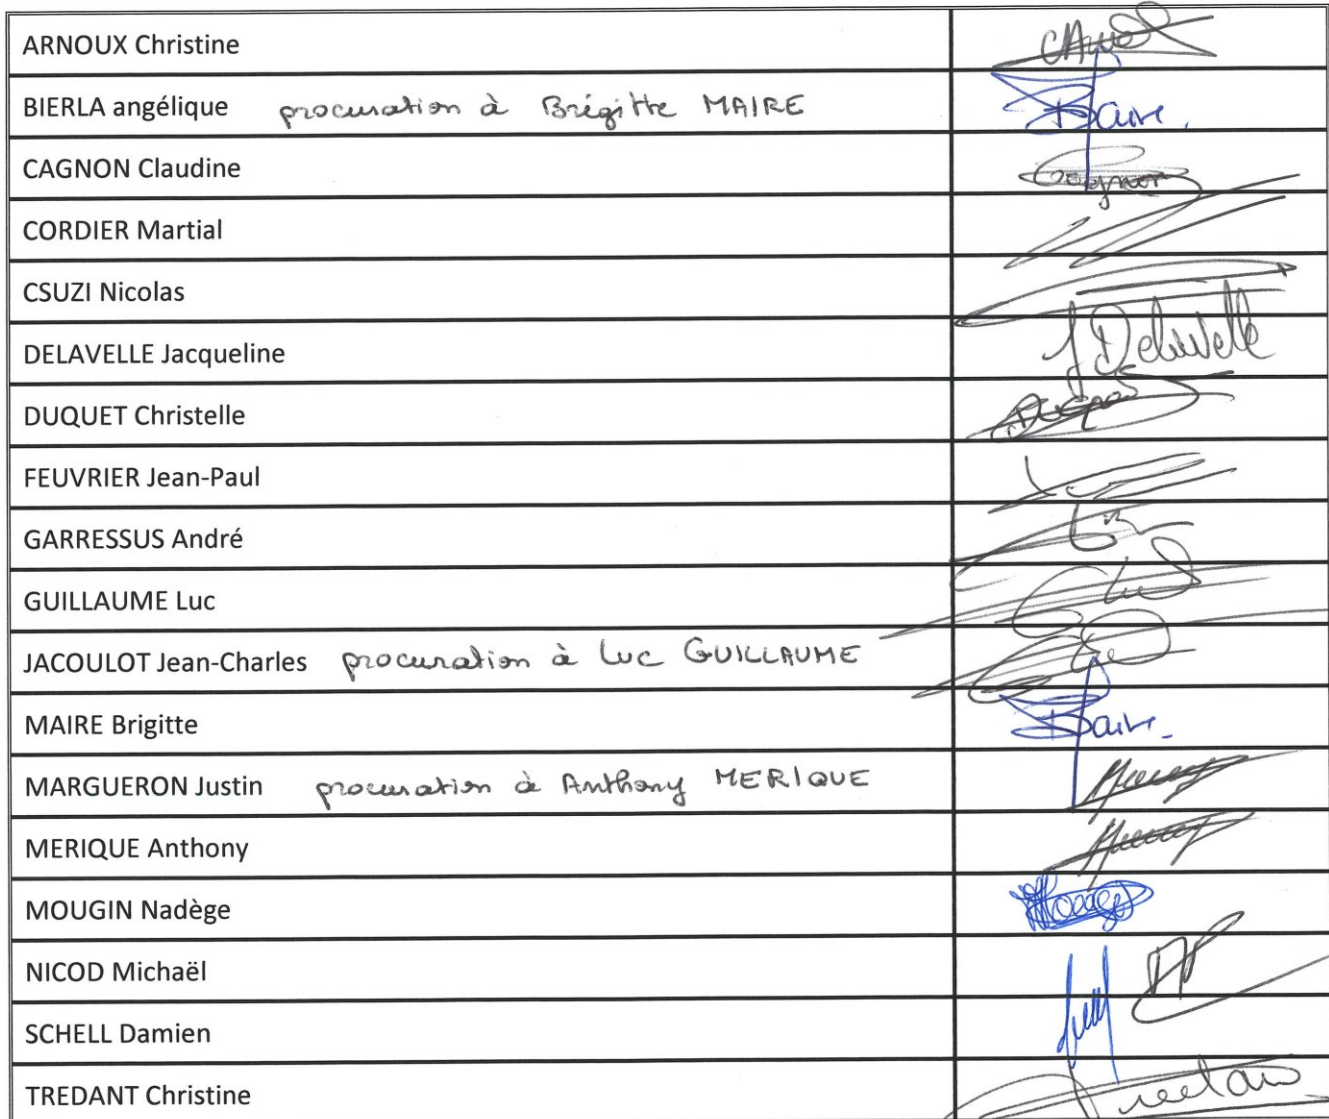 ARNOUX Christine
BIERLA angélique procuration à Brigitte MAIRE
CAGNON Claudine
CORDIER Martial
CSUZI Nicolas
DELAVELLE Jacqueline J Delavelle
DUQUET Christelle
FEUVRIER Jean-Paul
GARRESSUS André
GUILLAUME Luc
JACOULOT Jean-Charles procuration à Luc GUILLAUME
MAIRE Brigitte
MARGUERON Justin procuration à Anthony MERIQUE
MERIQUE Anthony
MOUGIN Nadège
NICOD Michaël
SCHELL Damien
TREDANT Christine